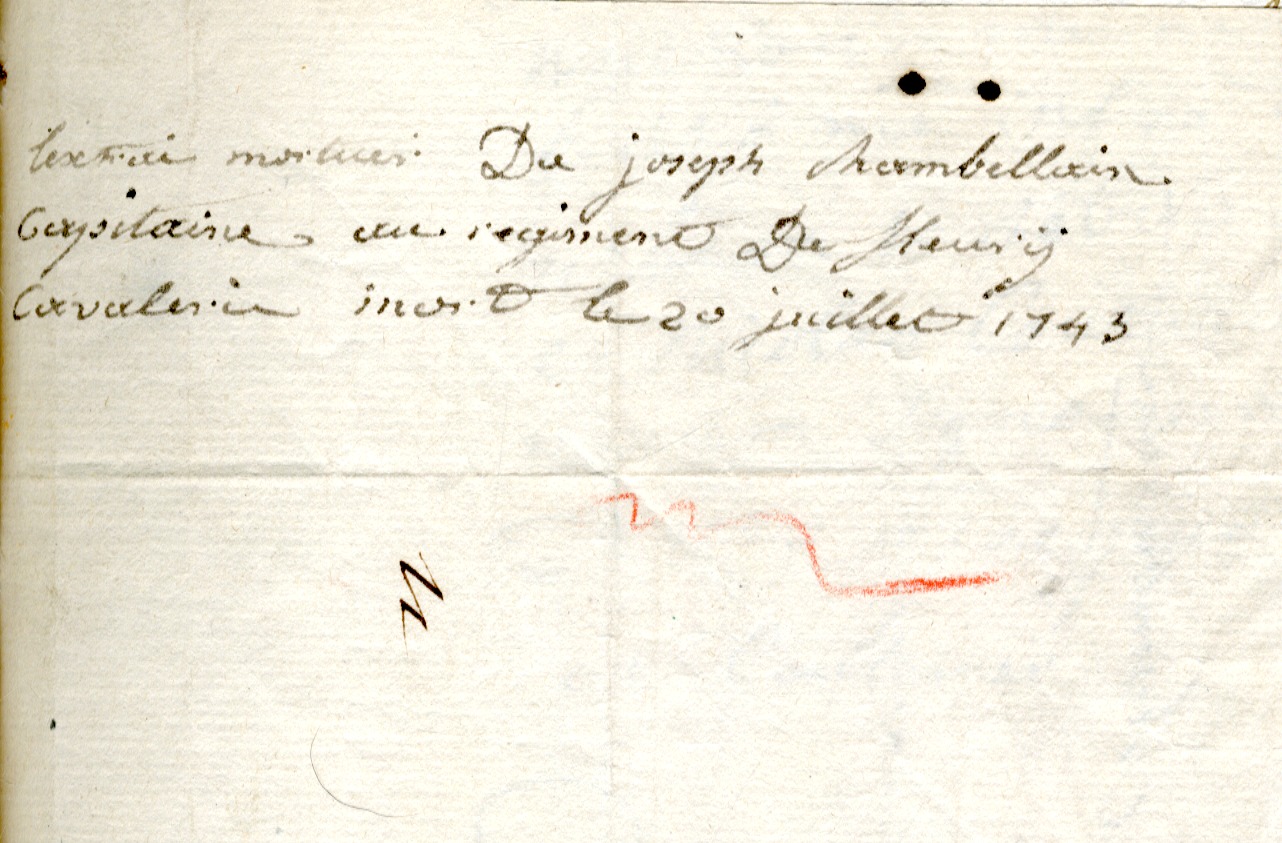 lextrai mortuer De joseph Chambellain
Capitaine au regiment De fleury
Cavalerie mort le 20 juillet 1743